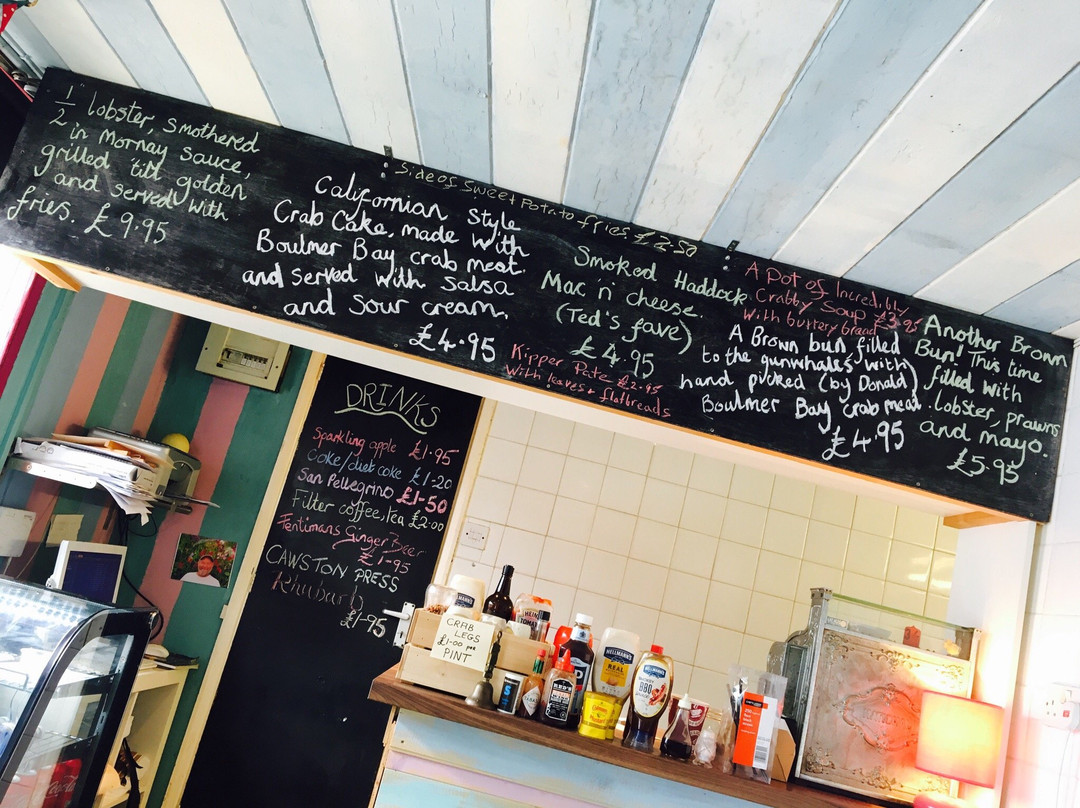 1/2 lobster, smothered
in Mornay sauce,
grilled 'till golden
and served with
fries. £9.95
Side of Sweet Potato fries. £2.50
Californian Style
Crab Cake, made with
Boulmer Bay crab meat.
and served with Salsa
and Sour cream.
£4.95
Smoked Haddock
Mac 'n' cheese.
(Ted's fave)
£4.95
Kipper Pate £2.95
With leaves + flatbreads
A Pot of Incredibly
Crabby Soup £3.95
With buttery bread
A Brown bun filled
to the gunwhales with
hand picked (by Donald)
Boulmer Bay crab meat.
£4.95
Another Brown
Bun! This time
filled with
lobster, prawns
and mayo.
£5.95
DRINKS
Sparkling apple £1.95
Coke/diet coke £1-20
San Pellegrino £1-50
Filter coffee, tea £2.00
Fentimans Ginger Beer
£1-95
CAWSTON PRESS
Rhubarb
£1-95
CRAB
LEGS
£1-00 per
PINT
HELLMANN'S
REAL
HELLMANN'S
BBQ
HEINZ